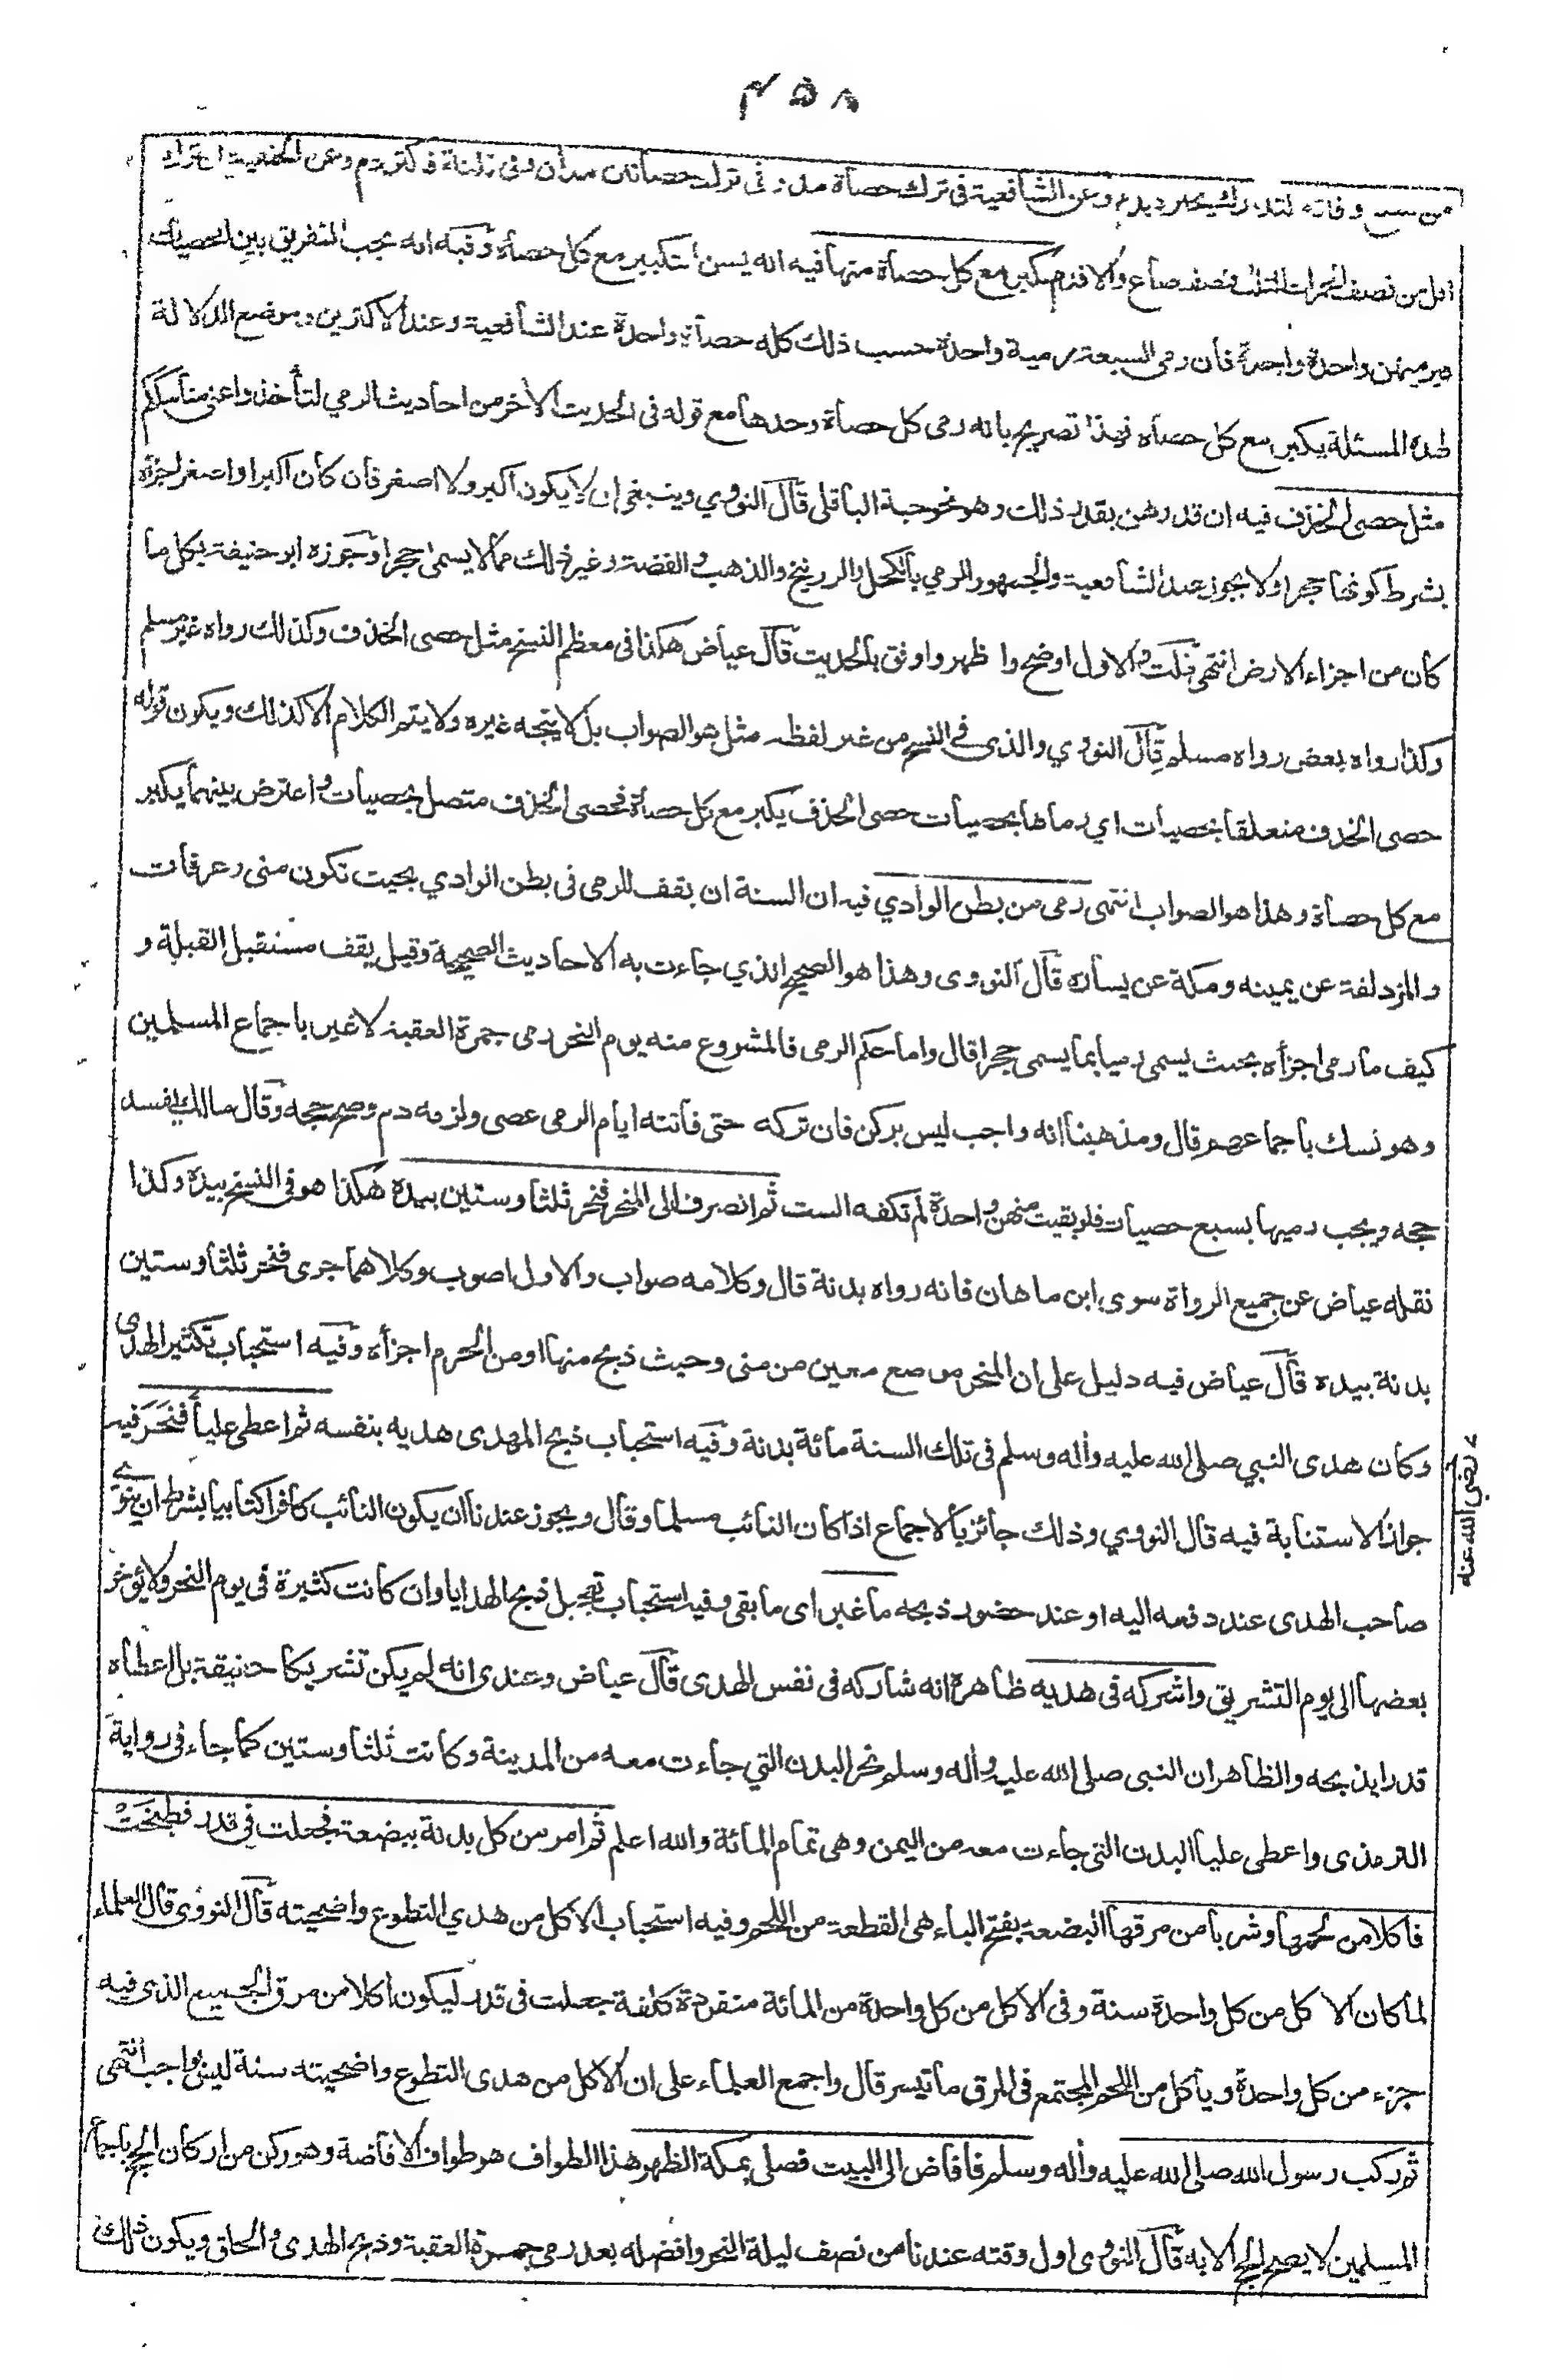 ٤٥٨
من سبع وفاته التدارك يجبر بدم وعن الشافعية في ترك حصاة مد وفي ترك حصاتين مدان وفي ثلثة فاكثر دم وعن الحنفية ان ترك
اقل من نصف الجمرات الثلث فنصف صاع والا فدم يكبر مع كل حصاة منها فيه انه يسن التكبير مع كل حصاة وفيه انه يجب التفريق بين الحصيات
فيرميهن واحدة واحدة فان رمى السبعة رمية واحدة حسب ذلك كله حصاة واحدة عند الشافعية وعند الاكثرين وموضع الدلالة
لهذه المسئلة يكبر مع كل حصاة فهذا تصريح بانه رمى كل حصاة وحدها مع قوله في الحديث الاخر من احاديث الرمي لتأخذوا عنى مناسككم
مثل حصى الخذف فيه ان قدرهن بقدر ذلك وهو نحو حبة الباقلى قال النووي وينبغي ان لا يكون اكبر ولا اصغر فان كان اكبر او اصغر اجزأه
بشرط كونها حجرا ولا يجوز عند الشافعية والجمهور الرمي بالكحل والزرنيخ والذهب والفضة وغير ذلك مما لا يسمى حجرا وجوزه ابو حنيفة بكل ما
كان من اجزاء الارض انتهى قلت والاول اوضح واظهر واوفق بالحديث قال عياض هكذا في معظم النسخ مثل حصى الخذف وكذلك رواه غير مسلم
وكذا رواه بعض رواه مسلم قال النووي والذى في النسخ من غير لفظه مثل هو الصواب بل لا يتجه غيره ولا يتم الكلام الا كذلك ويكون قوله
حصى الخذف متعلقا بحصيات اي رماها بحصيات حصى الخذف يكبر مع كل حصاة فحصى الخذف متصل بحصيات واعترض بينهما يكبر
مع كل حصاة وهذا هو الصواب انتهى رمى من بطن الوادي فيه ان السنة ان يقف للرمى فى بطن الوادي بحيث تكون منى وعرفات
والمزدلفة عن يمينه ومكة عن يساره قال النووى وهذا هو الصحيح الذي جاءت به الاحاديث الصحيحة وقيل يقف مستقبل القبلة و
كيف ما رمى اجزأه بحيث يسمى رميا بما يسمى حجرا قال واما حكم الرمى فالمشروع منه يوم النحر رمى جمرة العقبة لا غير باجماع المسلمين
وهو نسك باجماعهم قال ومذهبنا انه واجب ليس بركن فان تركه حتى فاتته ايام الرمى عصى ولزمه دم وصح حجه وقال مالك يفسد
حجه ويجب رميها بسبع حصيات فلو بقيت منهن واحدة لم تكفه الست ثم انصرف الى المنحر فنحر ثلثا وستين بيده هكذا هو فى النسخ بيده وكذا
نقله عياض عن جميع الرواة سوى ابن ماهان فانه رواه بدنة قال وكلامه صواب والاول اصوب وكلاهما جرى فنحر ثلثا وستين
بدنة بيده قال عياض فيه دليل على ان المنحر موضع معين من منى وحيث ذبح منها او من الحرم اجزأه وفيه استحباب تكثير الهدى
وكان هدى النبي صلى الله عليه وأله وسلم فى تلك السنة مائة بدنة وفيه استحباب ذبح المهدى هديه بنفسه ثم اعطى عليا فنحر فيه
رضي الله عنه
جواز الاستنابة فيه قال النووي وذلك جائز بالاجماع اذا كان النائب مسلما وقال ويجوز عندنا ان يكون النائب كافرا كتابيا بشرط ان ينوي
صاحب الهدى عند دفعه اليه او عند حضور ذبحه ما غبر اى ما بقى وفيه استحباب تعجيل ذبح الهدايا وان كانت كثيرة فى يوم النحر ولا يؤخر
بعضها الى يوم التشريق واشركه فى هديه ظاهره انه شاركه فى نفس الهدى قال عياض وعندى انه لم يكن تشريكا حقيقة بل اعطاه
قدرا يذبحه والظاهر ان النبى صلى الله عليه وأله وسلم نحر البدن التي جاءت معه من المدينة وكانت ثلثا وستين كما جاء فى رواية
الترمذى واعطى عليا البدن التى جاءت معه من اليمن وهى تمام المائة والله اعلم ثم امر من كل بدنة ببضعة فجعلت فى قدر فطبخت
فاكلا من لحمها وشربا من مرقها البضعة بفتح الباء هى القطعة من اللحم وفيه استحباب الاكل من هدي التطوع واضحيته قال النووى قال العلماء
لما كان الاكل من كل واحدة سنة وفى الاكل من كل واحدة من المائة منفردة كلفة جعلت فى قدر ليكون أكلا من مرق الجميع الذى فيه
جزء من كل واحدة ويأكل من اللحم المجتمع فى المرق ما تيسر قال واجمع العلماء على ان الاكل من هدى التطوع واضحيته سنة ليس واجب انتهى
ثم ركب رسول الله صلى الله عليه وأله وسلم فافاض الى البيت فصلى بمكة الظهر هذا الطواف هو طواف الافاضة وهو ركن من اركان الحج باجماع
المسلمين لا يصح الحج الا به قال النووى اول وقته عندنا من نصف ليلة النحر وافضله بعد رمى جمرة العقبة وذبح الهدى والحلق ويكون ذلك